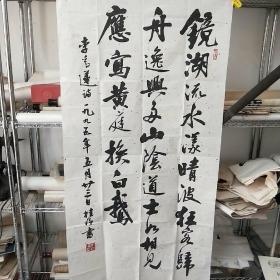 鏡湖流水漾晴波狂客歸
舟逸興多山陰道士如相見
應寫黄庭換白鵝
李青蓮詩一九九五年五月廿三日桂 書